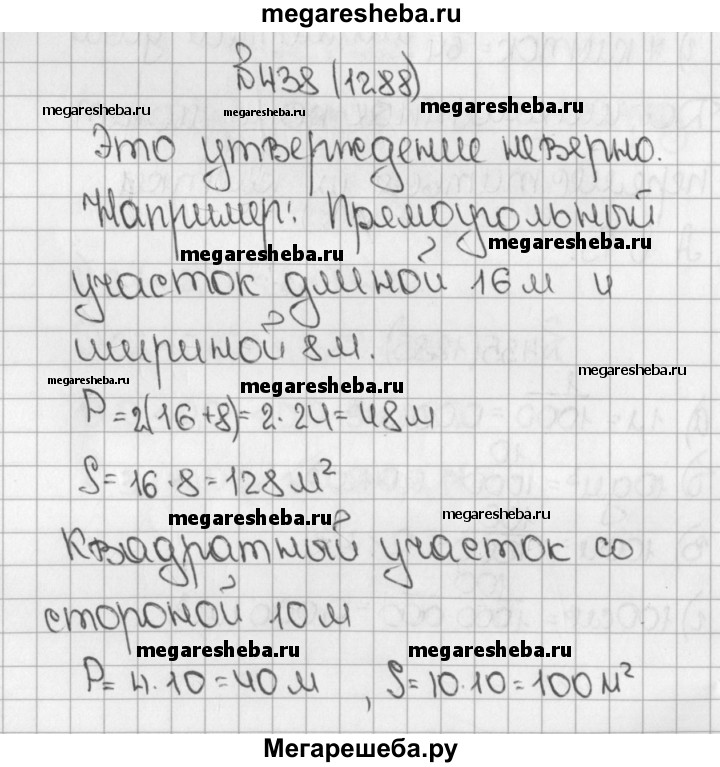 megaresheba.ru
В438 (1288)
megaresheba.ru megaresheba.ru megaresheba.ru
Это утверждение неверно.
Например: Прямоугольный
megaresheba.ru megaresheba.ru
участок длиной 16 м и
шириной 8 м.
megaresheba.ru megaresheba.ru megaresheba.ru
P = 2(16+8) = 2·24 = 48 м
S = 16·8 = 128 м²
megaresheba.ru megaresheba.ru
Квадратный участок со
стороной 10 м
megaresheba.ru megaresheba.ru
P = 4·10 = 40 м, S = 10·10 = 100 м²
Мегарешеба.ру